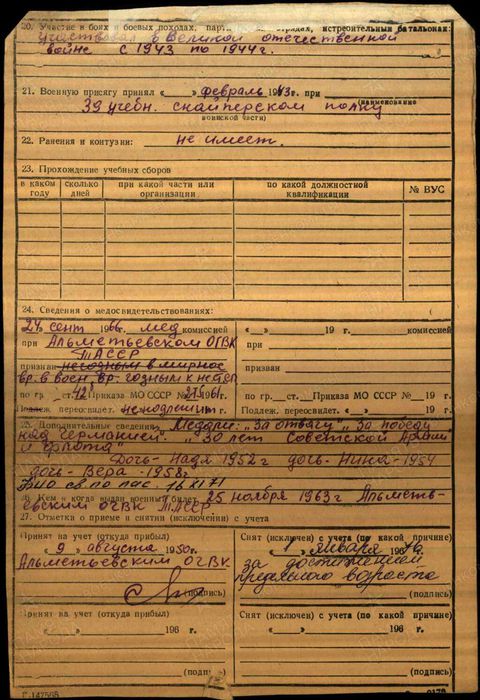 20. Участие в боях и боевых походах, парт отрядах, истребительн батальонах:
Участвовал в Великой отечественной
войне с 1943 по 1944 г.
21. Военную присягу принял « » февраль 1943 г. при
(наименование
39 учебн. снайперском полку
воинской части)
22. Ранения и контузии: не имеет.
23. Прохождение учебных сборов
в каком году сколько дней при какой части или организации по какой должностной квалификации № ВУС
24. Сведения о медосвидетельствованиях:
24 сент 1966 г. мед комиссией
при Альметьевском ОГВК
ТАССР
признан негодным в мирное
вр. в воен. вр. годным к нестр
по гр. ст. 42 Приказа МО СССР №
Подлеж. переосвидет. неподлежит г.
« » 19 г. комиссией
при
признан
по гр. ст. Приказа МО СССР № 19 г.
Подлеж. переосвидет. « » 19 г.
25. Дополнительные сведения Медали: "За отвагу" "За победу
над Германией". "30 лет Советской Армии
и флота"
Дочь - Надя 1952 г дочь - Нина - 1954
дочь - Вера - 1958 г.
26. Кем и когда выдан военный билет 25 ноября 1963 г Альметь-
евским ОГВК ТАССР
27. Отметки о приеме и снятии (исключении) с учета
Принят на учет (откуда прибыл)
« 9 » августа 1950 г.
Альметьевским ОГВК
(подпись)
Снят (исключен) с учета (по какой причине)
« 1 » января 1976
за достижением
предельного возраста
(подпись)
Принят на учет (откуда прибыл)
196 г.
(подпись)
Снят (исключен) с учета (по какой причине)
« » 196 г.
(подпись)